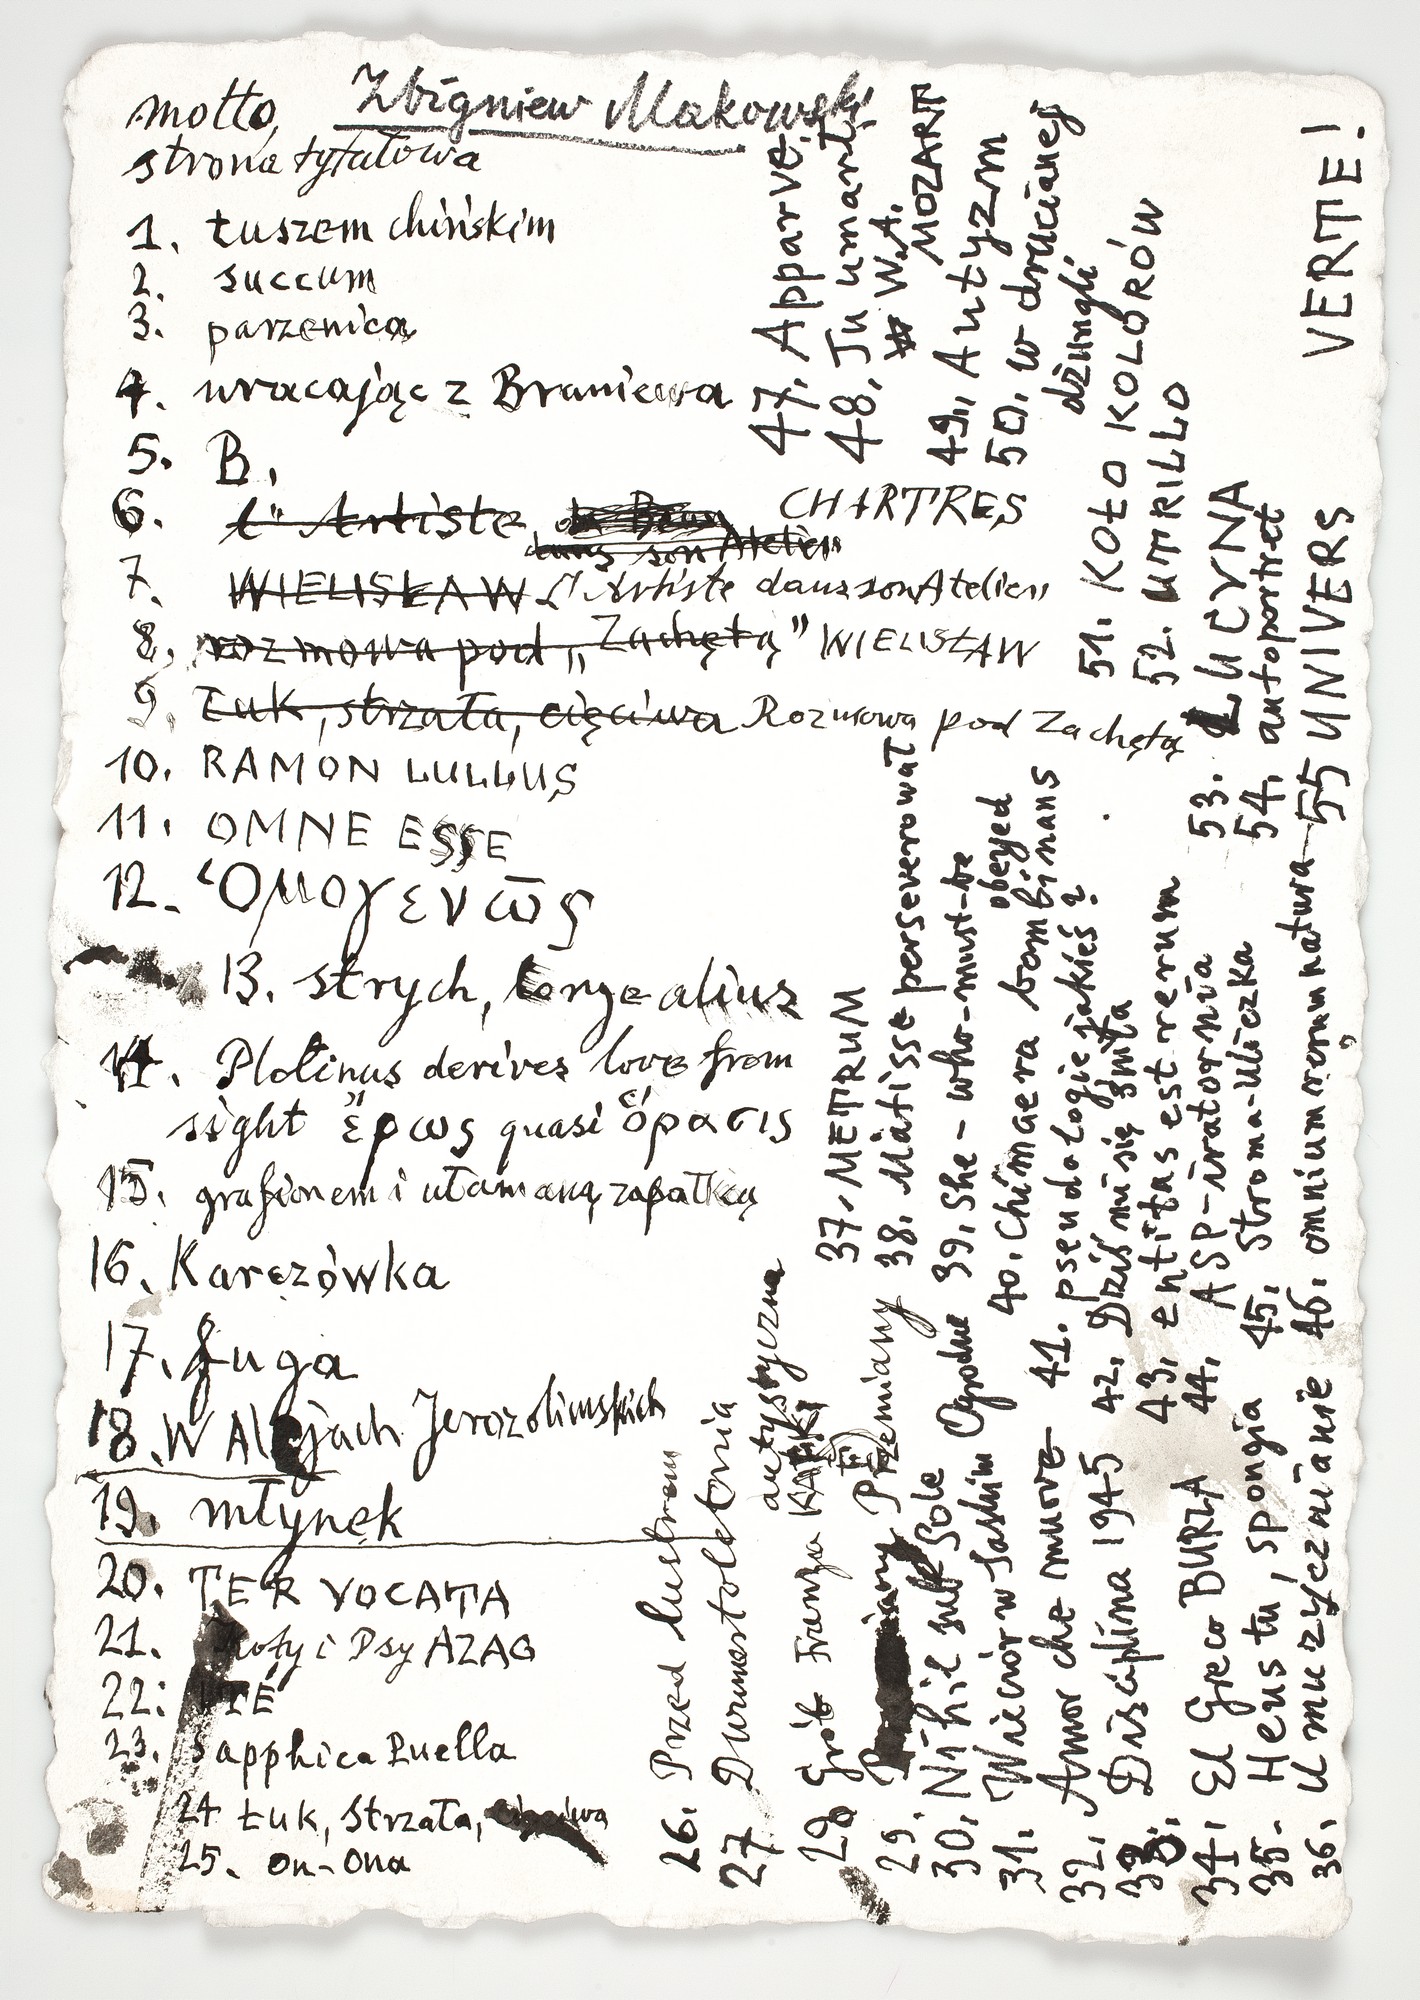 motto, Zbigniew Makowski
strona tytułowa
1. tuszem chińskim
2. succum
3. parzenica
4. wracając z Braniewa
5. B.
6. l'' Artiste dans son Atelier CHARTRES
7. WIELISŁAW L'' Artiste dans son Atelier
8. rozmowa pod „Zachętą” WIELISŁAW
9. Łuk, strzała, cięciwa Rozmowa pod Zachętą
10. RAMON LULLUS
11. OMNE ESSE
12. Ὁμογενῶς
13. strych, longe alius
14. Plotinus derives love from
sight ἔρως quasi ὅρασις
15. grafionem i ułamaną zapałką
16. Karczówka
17. fuga
18. W Alejach Jerozolimskich
19. młynek
20. TER VOCATA
21. Koty i Psy AZAG
22. ITÉ
23. Sapphica Puella
24 Łuk, Strzała, cięciwa
25. on-ona
26. Przed lustrem
27 Durnostoletonia
autystyczna
28 Grób Franza KAFKI
29. Przemiany
30. Nihil sub Sole
31. Wieciór w Saskim Ogrodzie
32. Amor che muove
33. Disciplina 1945
34. El Greco BURZA
35. Heus tu, spongia
36. Umuzycznianie
37. METRUM
38. Matisse perseverował
39. She-who-must-be
obeyed
40. Chimaera bombinans
41. pseudologie jakieś?
42. Dziś mi się śniła
43. entitas est rerum
44. ASP-iratornia
45. Stroma-uliczka
46. omnium rerum natura
47. Apparve.
48. Tu umarł
W.A.
MOZART
49. Autyzm
50. w drucianej
dżungli
51. KOŁO KOLORÓW
52. UTRILLO
53. LUCYNA
54. autoportret
55 UNIVERS
VERTE!